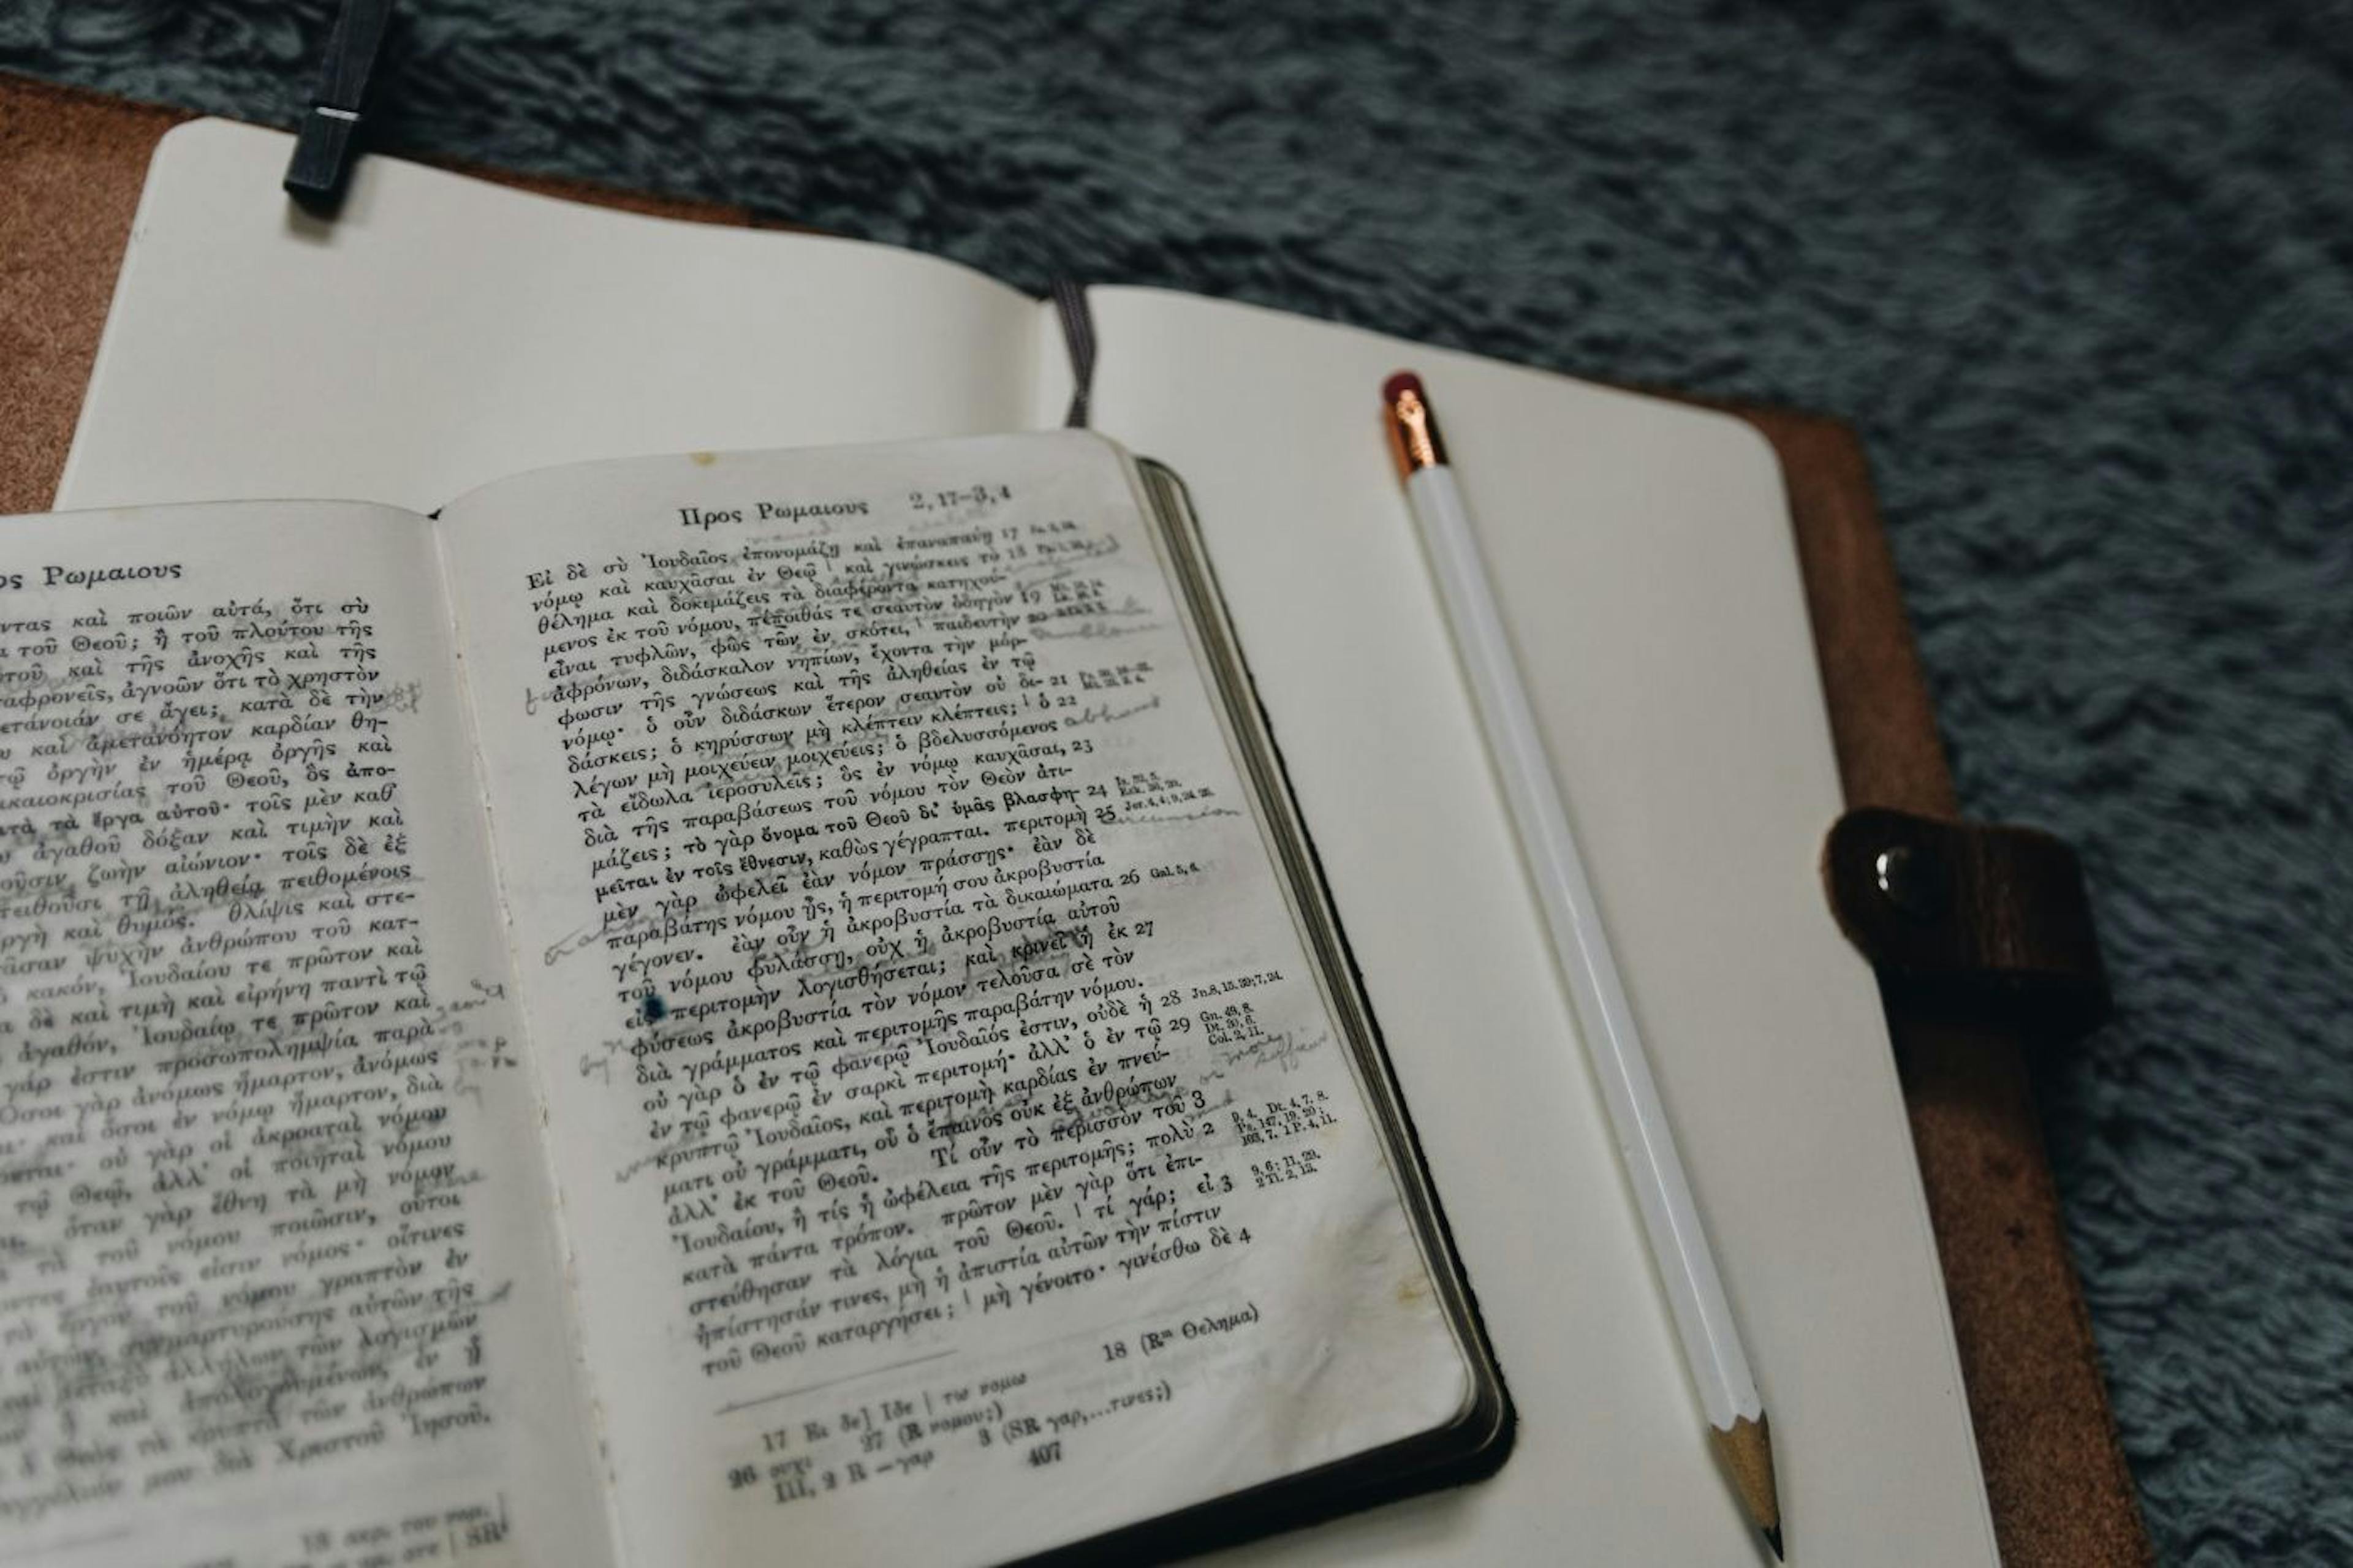 ος Ρωμαιους
ντας καὶ ποιῶν αὐτά, ὅτι σὺ
τοῦ Θεοῦ; ἢ τοῦ πλούτου τῆς
τοῦ καὶ τῆς ἀνοχῆς καὶ τῆς
αφρονεῖς, ἀγνοῶν ὅτι τὸ χρηστὸν
ετάνοιάν σε ἄγει; κατὰ δὲ τὴν
καὶ ἀμετανόητον καρδίαν θη-
ῷ ὀργὴν ἐν ἡμέρᾳ ὀργῆς καὶ
ικαιοκρισίας τοῦ Θεοῦ, ὃς ἀπο-
ατὰ τὰ ἔργα αὐτοῦ· τοῖς μὲν καθ'
ἀγαθοῦ δόξαν καὶ τιμὴν καὶ
οῦσιν, ζωὴν αἰώνιον· τοῖς δὲ ἐξ
πειθοῦσι τῇ ἀληθείᾳ πειθομένοις
ργὴ καὶ θυμός. θλῖψις καὶ στε-
ᾶσαν ψυχὴν ἀνθρώπου τοῦ κατ-
κακόν, Ἰουδαίου τε πρῶτον καὶ
δὲ καὶ τιμὴ καὶ εἰρήνη παντὶ τῷ
ἀγαθόν, Ἰουδαίῳ τε πρῶτον καὶ
γάρ ἐστιν προσωπολημψία παρὰ
Ὅσοι γὰρ ἀνόμως ἥμαρτον, ἀνόμως
καὶ ὅσοι ἐν νόμῳ ἥμαρτον, διὰ
οὐ γὰρ οἱ ἀκροαταὶ νόμου
τῷ Θεῷ, ἀλλ' οἱ ποιηταὶ νόμου
ὅταν γὰρ ἔθνη τὰ μὴ νόμον
τὰ τοῦ νόμου ποιῶσιν, οὗτοι
ἑαυτοῖς εἰσιν νόμος· οἵτινες
τὸ ἔργον τοῦ νόμου γραπτὸν ἐν
συμμαρτυρούσης αὐτῶν τῆς
μεταξὺ ἀλλήλων τῶν λογισμῶν
ἢ καὶ ἀπολογουμένων, ἐν ᾗ
ὁ Θεὸς τὰ κρυπτὰ τῶν ἀνθρώπων
μου διὰ Χριστοῦ Ἰησοῦ.
Προς Ρωμαιους 2,17–3,4
Εἰ δὲ σὺ Ἰουδαῖος ἐπονομάζῃ καὶ ἐπαναπαύῃ 17
νόμῳ καὶ καυχᾶσαι ἐν Θεῷ | καὶ γινώσκεις τὸ 18
θέλημα καὶ δοκιμάζεις τὰ διαφέροντα κατηχού-
μενος ἐκ τοῦ νόμου, πέποιθάς τε σεαυτὸν ὁδηγὸν 19
εἶναι τυφλῶν, φῶς τῶν ἐν σκότει, | παιδευτὴν 20
ἀφρόνων, διδάσκαλον νηπίων, ἔχοντα τὴν μόρ-
φωσιν τῆς γνώσεως καὶ τῆς ἀληθείας ἐν τῷ
νόμῳ· ὁ οὖν διδάσκων ἕτερον σεαυτὸν οὐ δι- 21
δάσκεις; ὁ κηρύσσων μὴ κλέπτειν κλέπτεις; | ὁ 22
λέγων μὴ μοιχεύειν μοιχεύεις; ὁ βδελυσσόμενος
τὰ εἴδωλα ἱεροσυλεῖς; ὃς ἐν νόμῳ καυχᾶσαι, 23
διὰ τῆς παραβάσεως τοῦ νόμου τὸν Θεὸν ἀτι-
μάζεις; τὸ γὰρ ὄνομα τοῦ Θεοῦ δι' ὑμᾶς βλασφη- 24
μεῖται ἐν τοῖς ἔθνεσιν, καθὼς γέγραπται. περιτομὴ 25
μὲν γὰρ ὠφελεῖ ἐὰν νόμον πράσσῃς· ἐὰν δὲ
παραβάτης νόμου ᾖς, ἡ περιτομή σου ἀκροβυστία
γέγονεν. ἐὰν οὖν ἡ ἀκροβυστία τὰ δικαιώματα 26 Gal. 5, 6.
τοῦ νόμου φυλάσσῃ, οὐχ ἡ ἀκροβυστία αὐτοῦ
εἰς περιτομὴν λογισθήσεται; καὶ κρινεῖ ἡ ἐκ 27
φύσεως ἀκροβυστία τὸν νόμον τελοῦσα σὲ τὸν
διὰ γράμματος καὶ περιτομῆς παραβάτην νόμου.
οὐ γὰρ ὁ ἐν τῷ φανερῷ Ἰουδαῖός ἐστιν, οὐδὲ ἡ 28 Jn. 8, 15. 39; 7, 24.
ἐν τῷ φανερῷ ἐν σαρκὶ περιτομή· ἀλλ' ὁ ἐν τῷ 29 Gn. 49, 8. Dt. 30, 6. Col. 2, 11.
κρυπτῷ Ἰουδαῖος, καὶ περιτομὴ καρδίας ἐν πνεύ-
ματι οὐ γράμματι, οὗ ὁ ἔπαινος οὐκ ἐξ ἀνθρώπων
ἀλλ' ἐκ τοῦ Θεοῦ. Τί οὖν τὸ περισσὸν τοῦ 3
Ἰουδαίου, ἢ τίς ἡ ὠφέλεια τῆς περιτομῆς; πολὺ 2 9, 4. Dt. 4, 7. 8. Ps. 147, 19. 20; 103, 7. 1 P. 4, 11.
κατὰ πάντα τρόπον. πρῶτον μὲν γὰρ ὅτι ἐπι-
στεύθησαν τὰ λόγια τοῦ Θεοῦ. | τί γάρ; εἰ 3 9, 6; 11, 29. 2 Ti. 2, 13.
ἠπίστησάν τινες, μὴ ἡ ἀπιστία αὐτῶν τὴν πίστιν
τοῦ Θεοῦ καταργήσει; | μὴ γένοιτο· γινέσθω δὲ 4
17 Ει δε] Ιδε | τω νομω 18 (Rᵐ Θελημα)
26 ουχι 27 (R νομου;)
III, 2 R –γαρ 3 (SR γαρ,...τινες;)
407